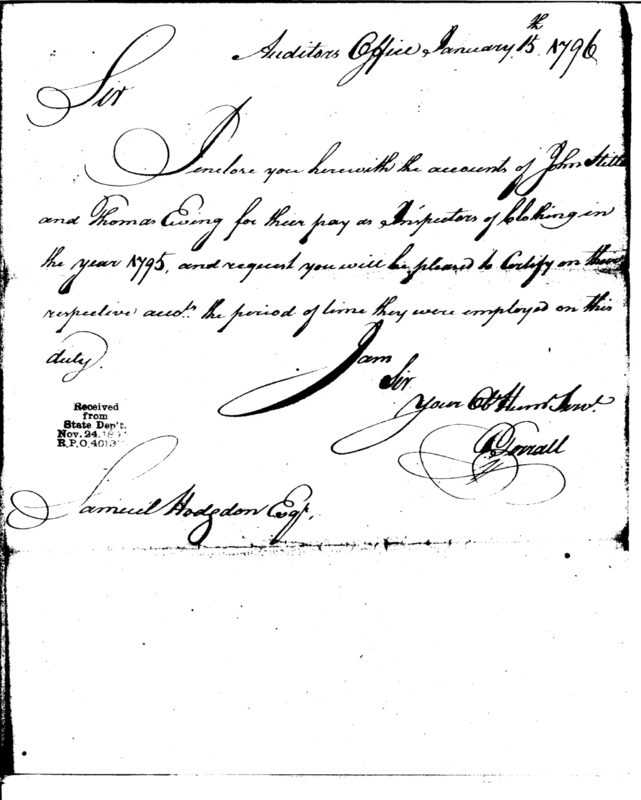 Auditors Office January 15th 1796
Sir
I enclose you herewith the accounts of John Stille
and Thomas Ewing for their pay as Inspectors of Clothing in
the year 1795, and request you will be pleased to Certify on their
respective accots. the period of time they were employed on this
duty.
I am
Sir
Your Obt Humb Servt.
Received
from
State Dep't.
Nov. 24, 18
R.P.O. 4013
Samuel Hodgdon Esqr.